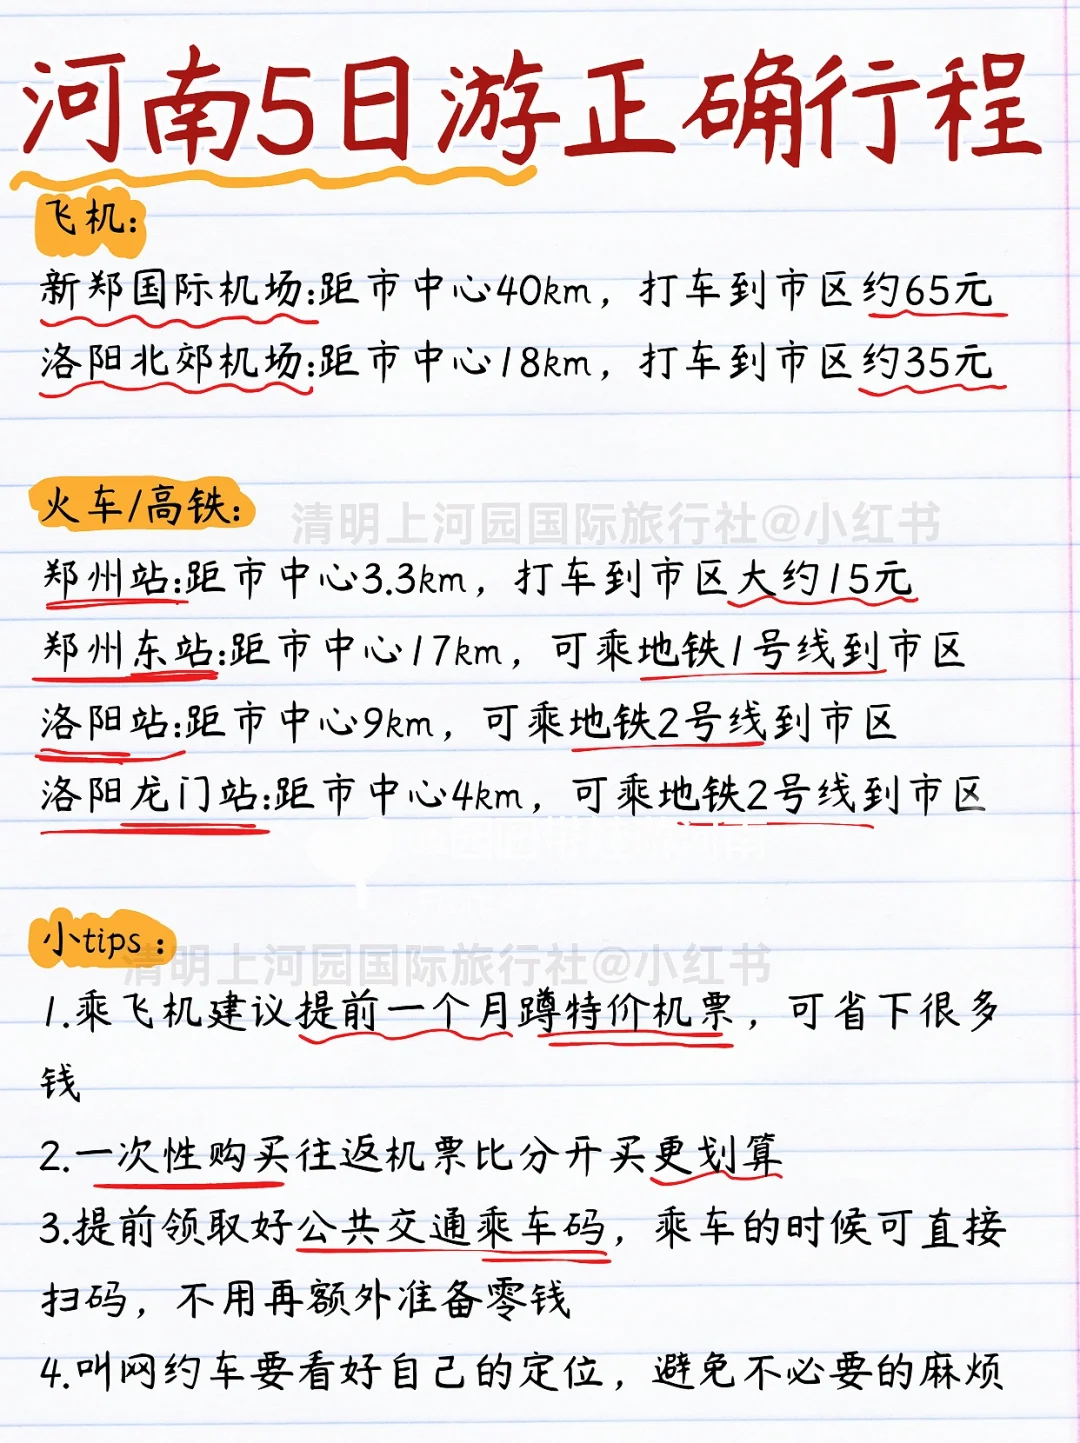 河南5日游正确行程
飞机:
新郑国际机场:距市中心40km，打车到市区约65元
洛阳北郊机场:距市中心18km，打车到市区约35元
火车/高铁:
清明上河园国际旅行社@小红书
郑州站:距市中心3.3km，打车到市区大约15元
郑州东站:距市中心17km，可乘地铁1号线到市区
洛阳站:距市中心9km，可乘地铁2号线到市区
洛阳龙门站:距市中心4km，可乘地铁2号线到市区
小tips：
清明上河园国际旅行社@小红书
1.乘飞机建议提前一个月蹲特价机票，可省下很多
钱
2.一次性购买往返机票比分开买更划算
3.提前领取好公共交通乘车码，乘车的时候可直接
扫码，不用再额外准备零钱
4.叫网约车要看好自己的定位，避免不必要的麻烦